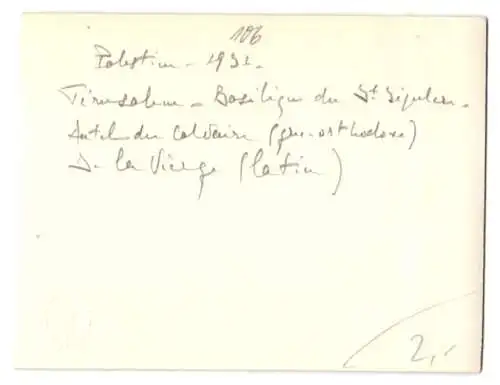 106
Palestine - 1931.
Jérusalem - Basilique du St Sépulcre -
Autel du Calvaire (grec-orthodoxe)
de la Vierge (latin)
2,-